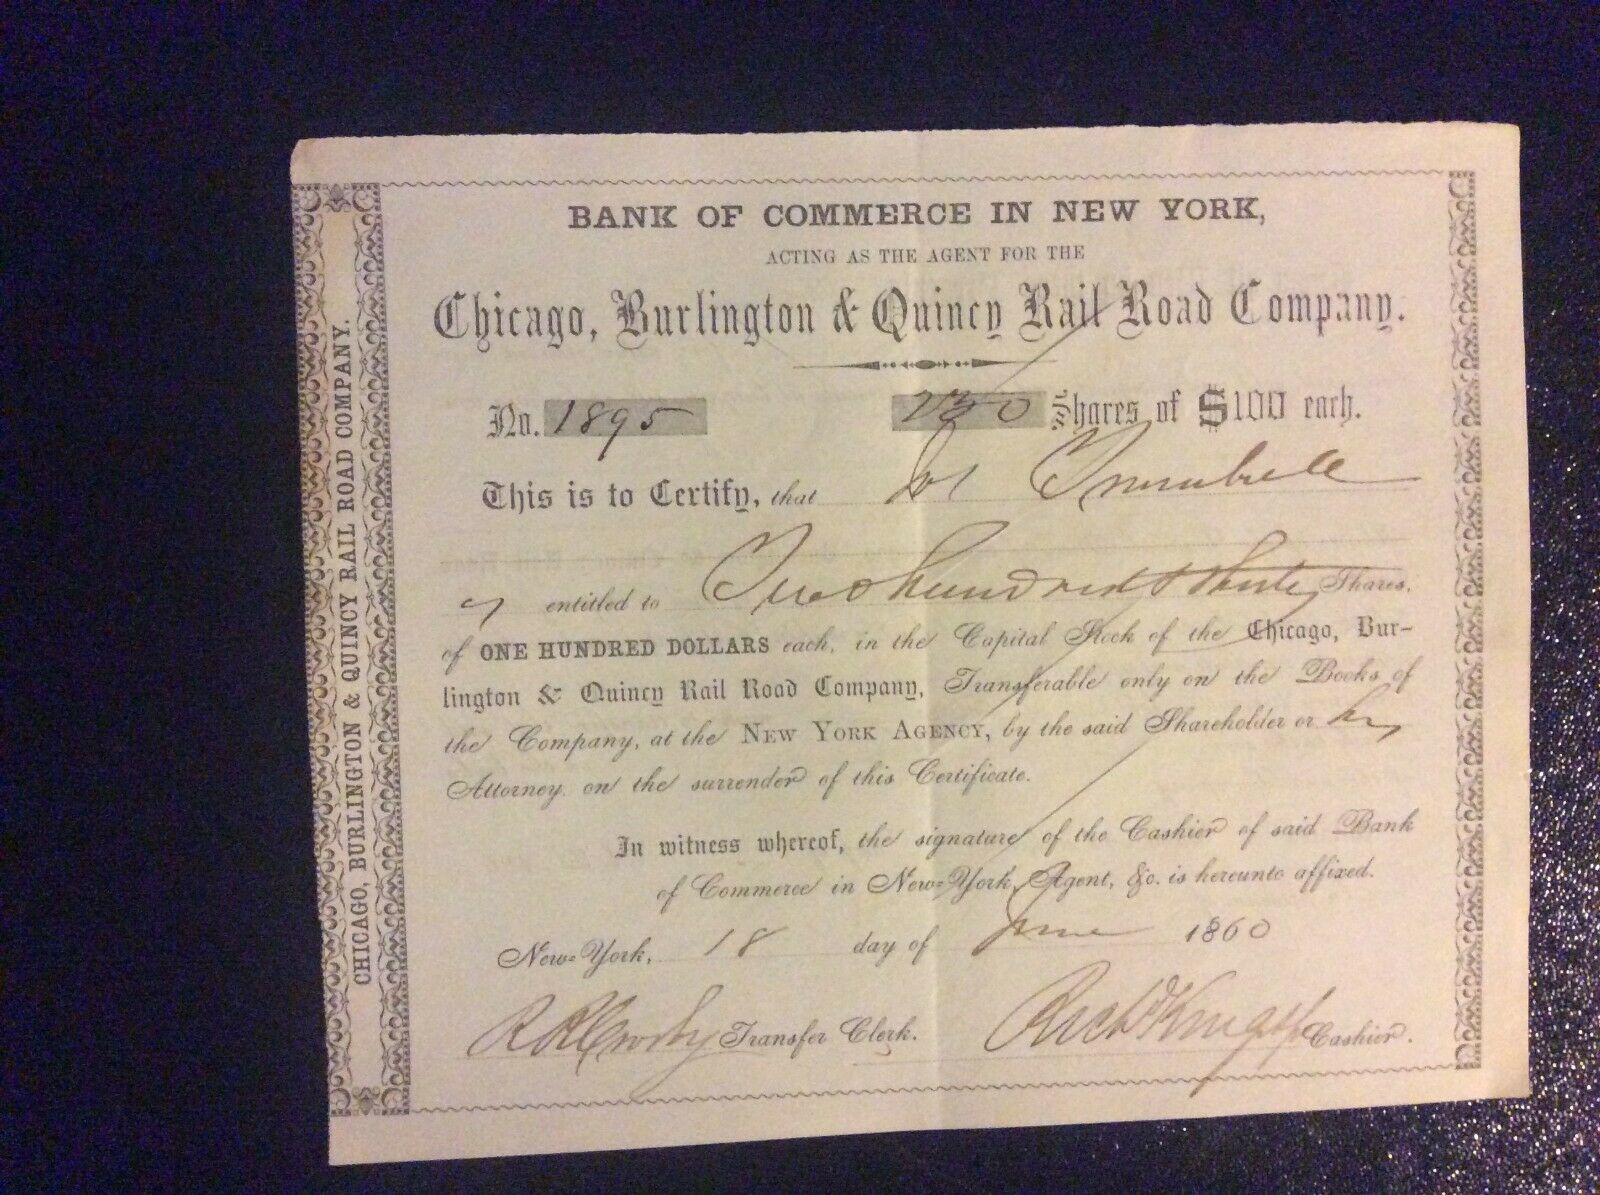 BANK OF COMMERCE IN NEW YORK,
ACTING AS THE AGENT FOR THE
Chicago, Burlington & Quincy Rail Road Company.
No. 1895 230 Shares of $100 each.
This is to Certify, that Trumbull
is entitled to Two hundred & thirty Shares,
of ONE HUNDRED DOLLARS each, in the Capital Stock of the Chicago, Bur-
lington & Quincy Rail Road Company, Transferable only on the Books of
the Company, at the NEW YORK AGENCY, by the said Shareholder or his
Attorney on the surrender of this Certificate.
In witness whereof, the signature of the Cashier of said Bank
of Commerce in New-York, Agent, &c. is hereunto affixed.
New-York, 18 day of June 1860
Crosby Transfer Clerk. Cashier.
CHICAGO, BURLINGTON & QUINCY RAIL ROAD COMPANY.